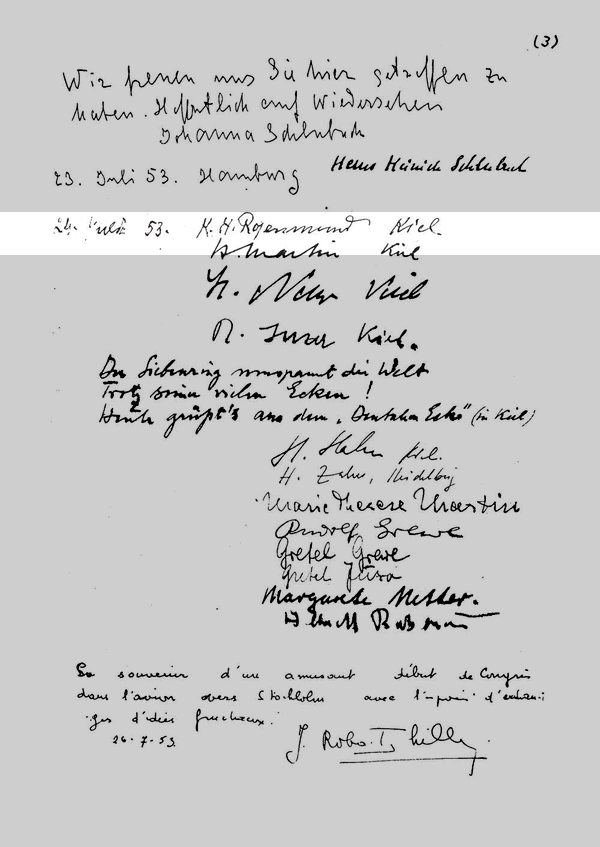 (3)
Wir freuen uns Sie hier getroffen zu
haben. Hoffentlich auf Wiedersehen
Johanna Schlubach
Hans Heinrich Schlubach
23. Juli 53. Hamburg
24. Juli 53. K. H. Kiel.
H. Martin Kiel
H. Kiel
R. Kiel.
Der Siebenring umspannt die Welt
Trotz seiner vielen Ecken!
Heute grüßt's aus dem „Deutschen Eck" (in Kiel)
H. Hahn Kiel.
H. Zahn, Heidelberg
Marie Therese Martin
Rudolf Grewe
Gretel Grewe
Gretel
Margarete Netter.
souvenir d'un amusant début de Congrès
dans l'avion vers Stockholm avec l'espoir d'echan-
ges d'idées
26-7-53
J.